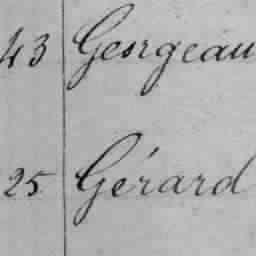 43 Georgeau
25 Gérard